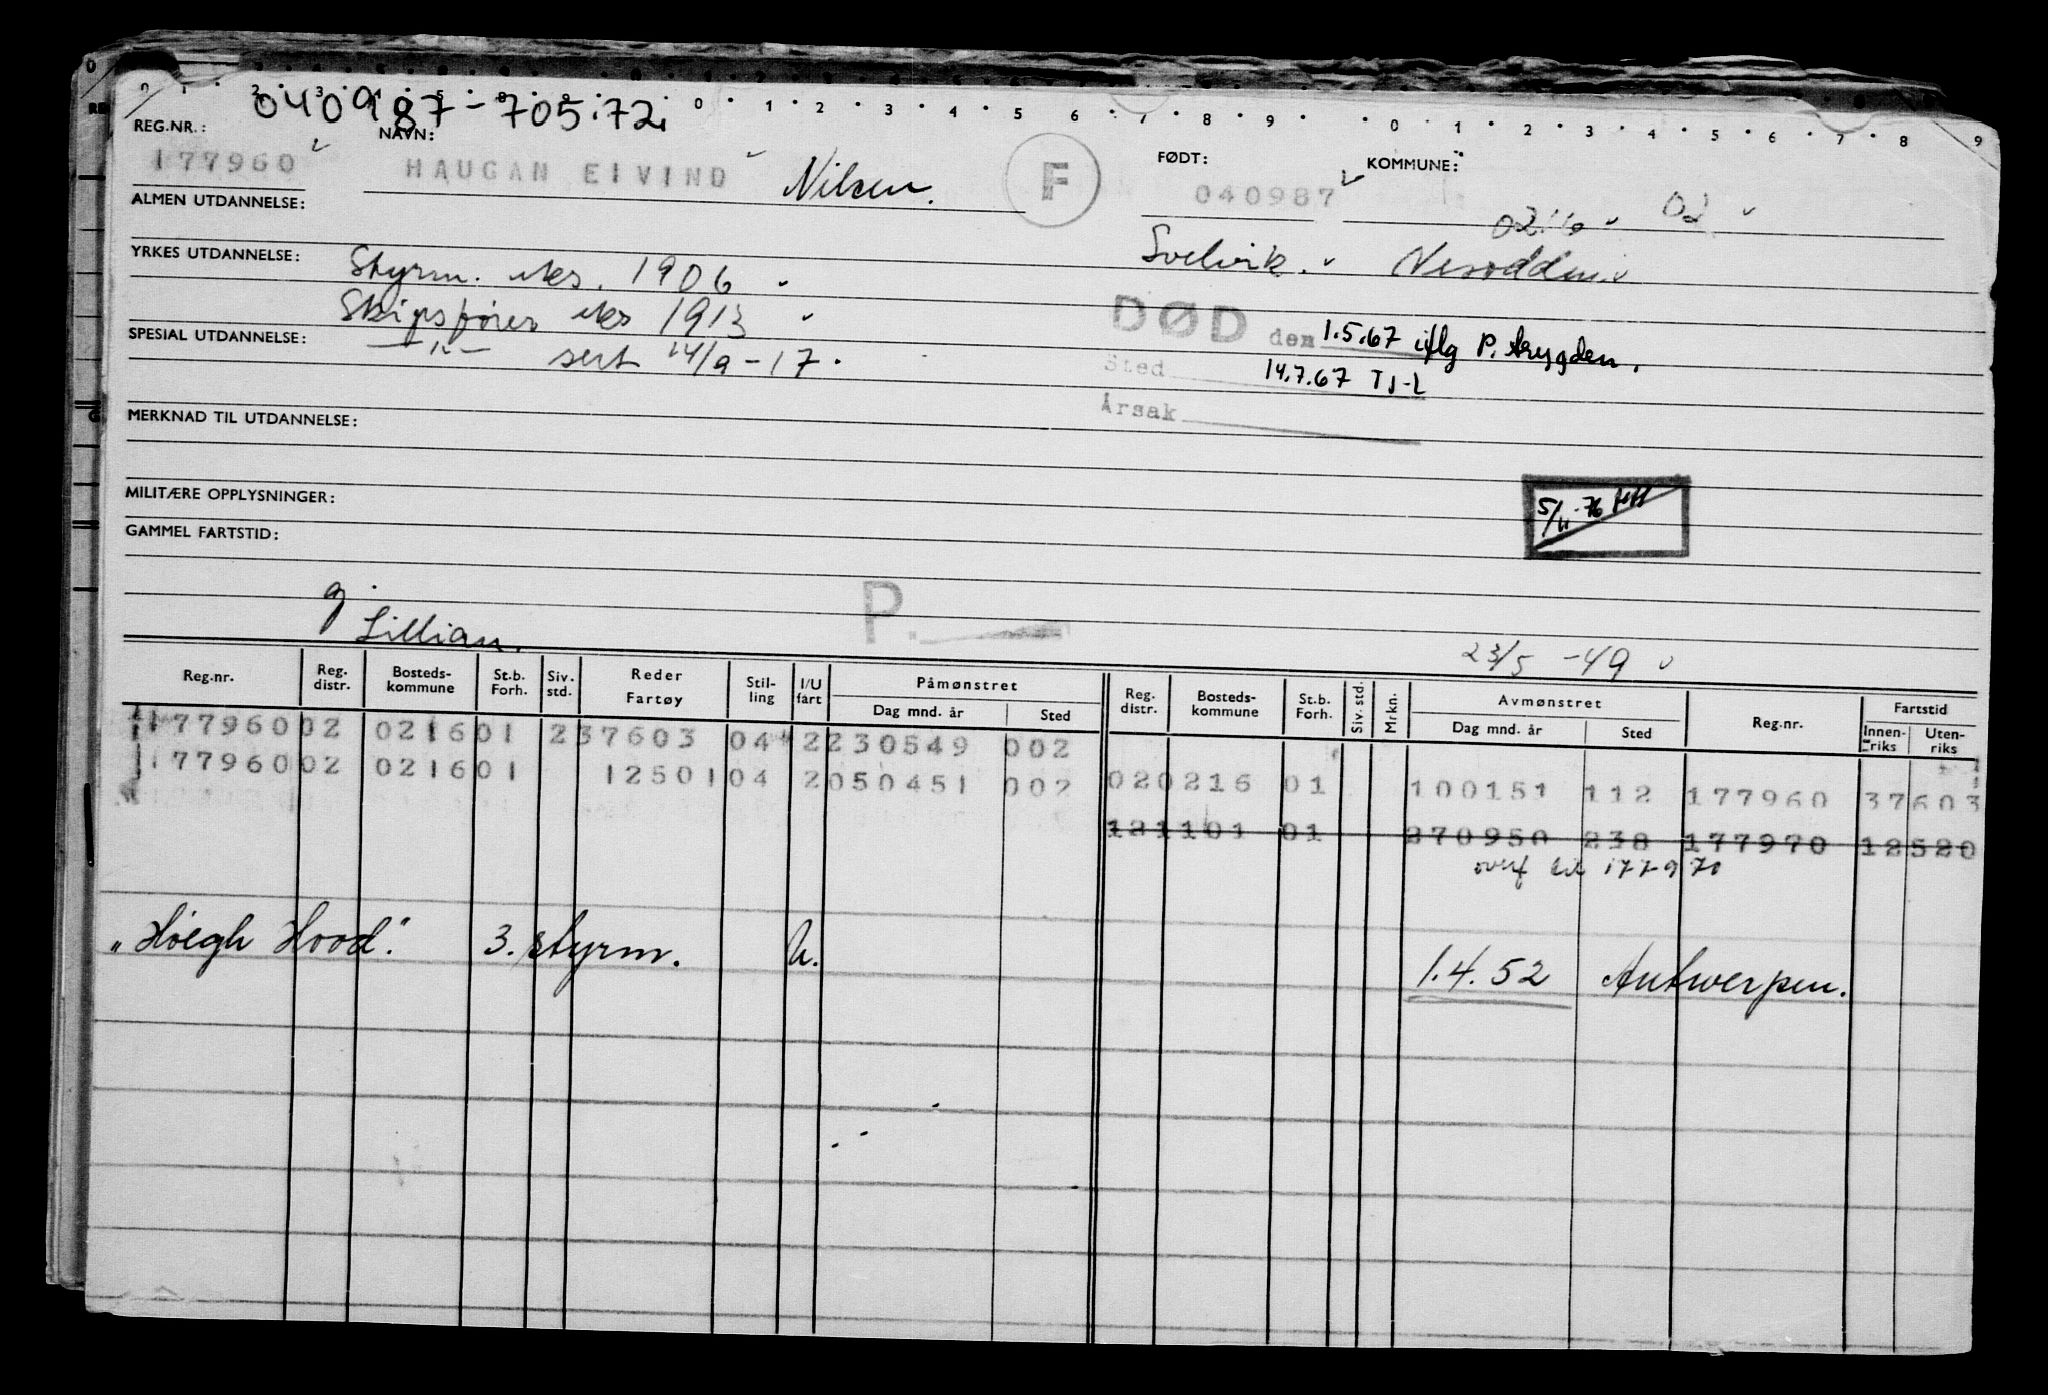 040987-705.72.
REG.NR.: NAVN: FØDT: KOMMUNE:
177960 HAUGAN EIVIND Nilsen. F 040987 0216 02
ALMEN UTDANNELSE:
Svelvik. Nesodden
YRKES UTDANNELSE: Styrm. eks. 1906
Skipsfører eks 1913
DØD den 1.5.67 iflg P. trygden.
SPESIAL UTDANNELSE: —"— sert 14/9-17.
Sted 14.7.67 TJ-L
Årsak
MERKNAD TIL UTDANNELSE:
MILITÆRE OPPLYSNINGER:
5/11-76
GAMMEL FARTSTID:
g Lillian.
P.
23/5-49
Reg.nr. Reg. distr. Bosteds-kommune St.b. Forh. Siv. std. Reder Fartøy Stil-ling I/U fart Påmønstret Dag mnd. år Sted Reg. distr. Bosteds-kommune St.b. Forh. Siv. std. Mrkn. Avmønstret Dag mnd. år Sted Reg.nr. Fartstid Innen-riks Uten-riks
177960 02 0216 01 2 37603 04 2 230549 002
177960 02 0216 01 12501 04 2 050451 002 02 0216 01 100151 112 177960 37603
12 1101 01 270950 238 177970 12520
overf til 177970
"Höegh Hood". 3. styrm. U. 1.4.52 Antwerpen.